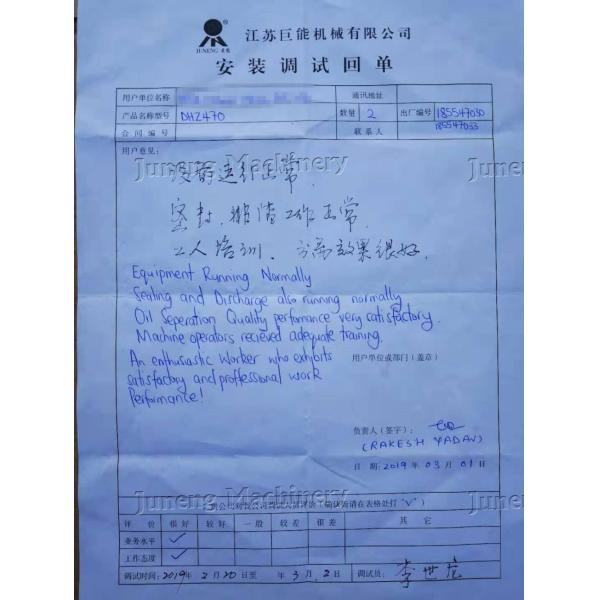 JUNENG 巨能
江苏巨能机械有限公司
安装调试回单
用户单位名称 通讯地址
产品名称型号 DHZ470 数量 2 出厂编号 185547030
185547033
合同编号 联系人
用户意见:
Juneng Machinery
设备运行正常.
密封、排渣工作正常.
工人培训、分离效果很好.
Equipment Running Normally
Sealing and Discharge also running normally
Oil Seperation Quality perfomance very satisfactory.
Machine operators recieved adequate training.
An enthusiastic Worker who exhibits
satisfactory and proffessional work
Performance!
用户单位或部门(盖章)
负责人(签字):
(RAKESH YADAV)
日 期: 2019 年 03 月 01 日
Juneng Machinery
请在表格处打"√")
评 价 很好 较好 一般 较差 很差 其 它
业务水平 ✓
工作态度 ✓
调试时间: 2019 年 2 月 20 日至 年 3 月 2 日 调试员: 李世龙